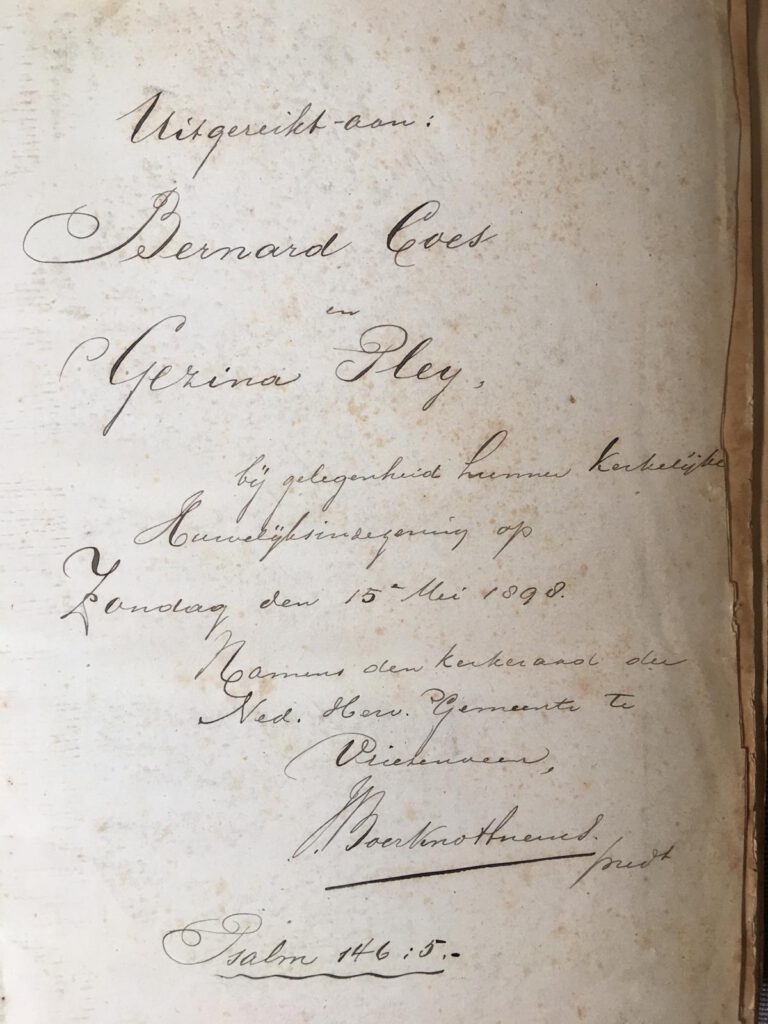 Uitgereikt aan:
Bernard Coes
en
Gezina Pley,
bij gelegenheid hunner Kerkelijke
Huwelijksinzegening op
Zondag den 15n Mei 1898.
Namens den Kerkeraad der
Ned. Herv. Gemeente te
Vriezenveen,
predt
Psalm 146:5.-